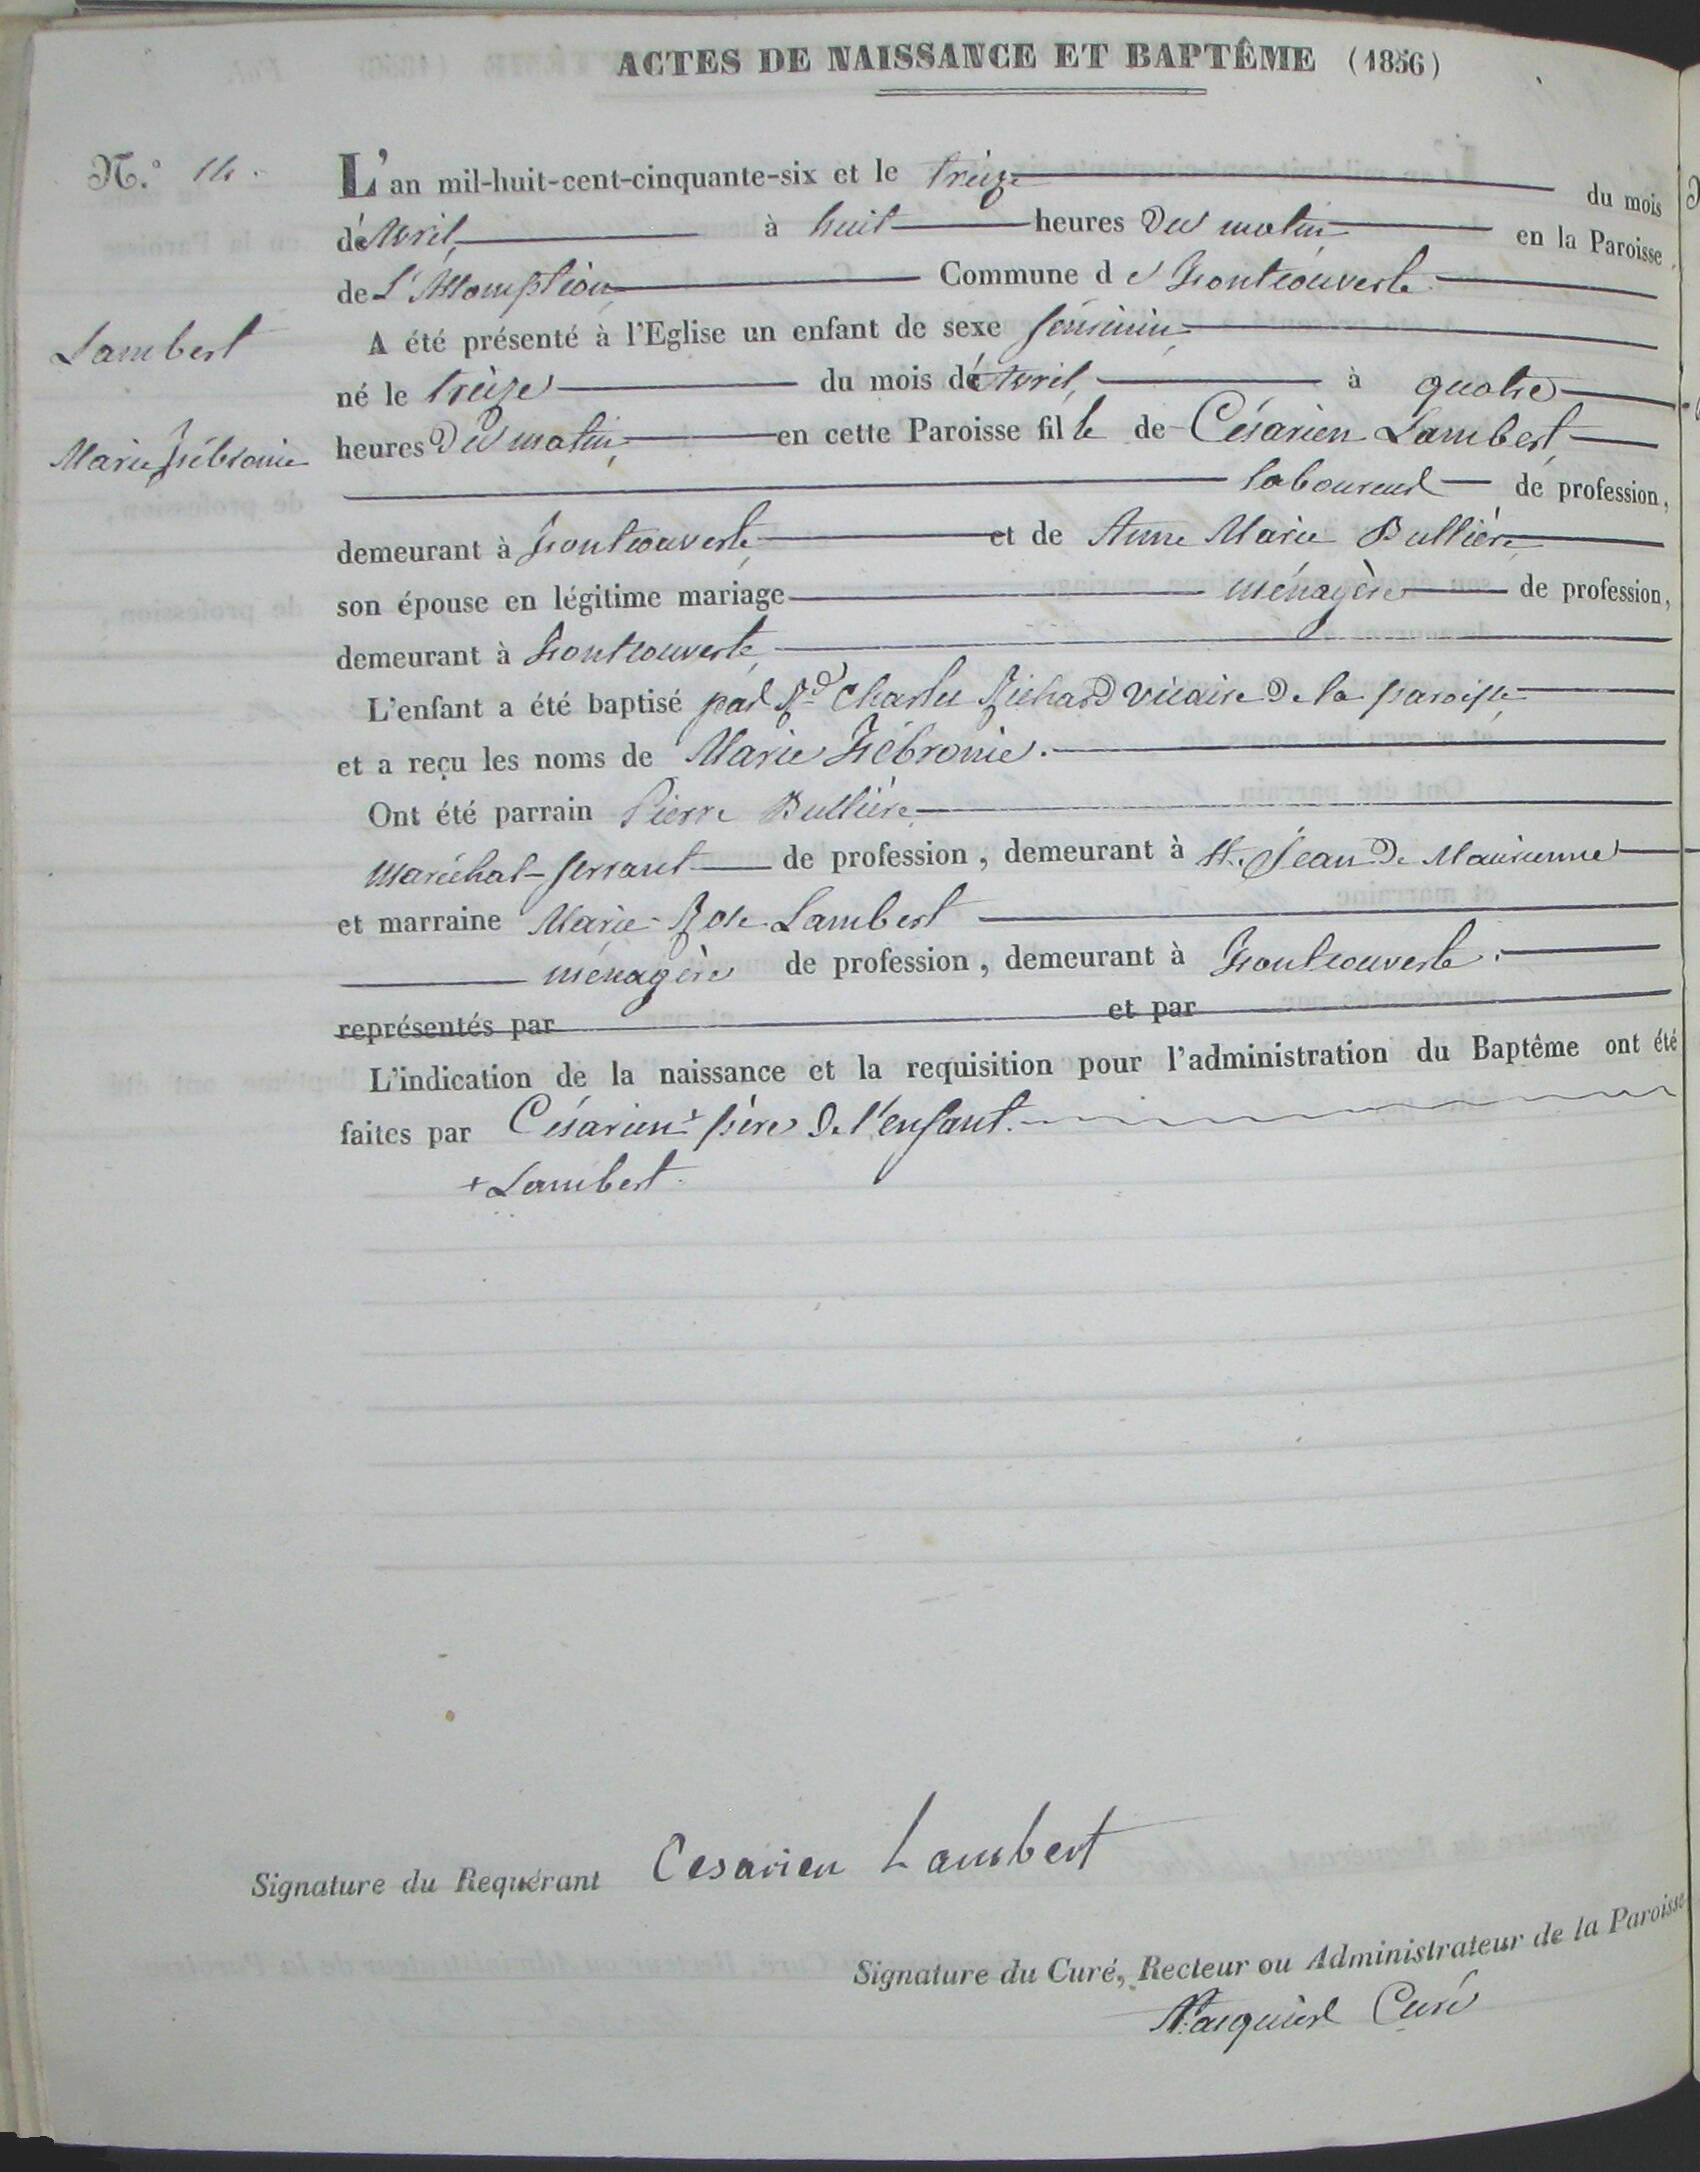 ACTES DE NAISSANCE ET BAPTÊME (1856)
N.° 14.
L'an mil-huit-cent-cinquante-six et le treize du mois
d'Avril, à huit heures du matin en la Paroisse
de L'Assomption Commune de Fontcouverte
Lambert
A été présenté à l'Eglise un enfant de sexe féminin
né le treize du mois d'Avril, à quatre
Marie Fébronie
heures du matin, en cette Paroisse fille de Césarien Lambert,
laboureur de profession,
demeurant à Fontcouverte, et de Anne Marie Bullière
son épouse en légitime mariage ménagère de profession,
demeurant à Fontcouverte
L'enfant a été baptisé par Rd Charles Richard vicaire de la paroisse
et a reçu les noms de Marie Fébronie.
Ont été parrain Pierre Bullière
Maréchal-ferrant de profession, demeurant à St. Jean de Maurienne
et marraine Marie-Rose Lambert
ménagère de profession, demeurant à Fontcouverte.
représentés par et par
L'indication de la naissance et la requisition pour l'administration du Baptême ont été
faites par Césarien + père de l'enfant.
+ Lambert.
Signature du Requérant Cesarien Lambert
Signature du Curé, Recteur ou Administrateur de la Paroisse
Curé